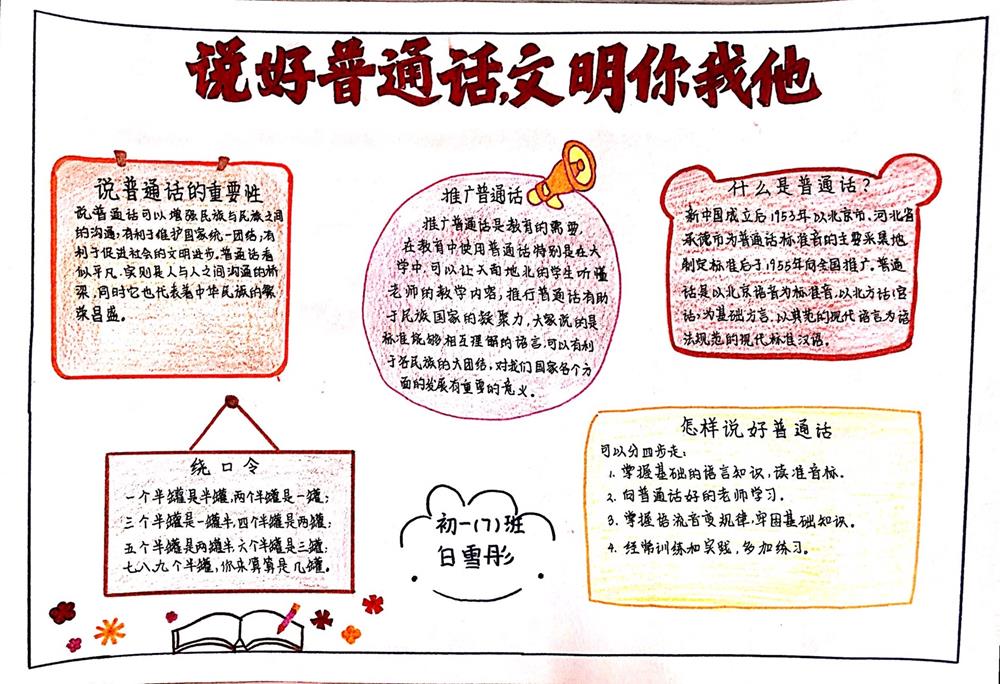 说好普通话,文明你我他
说普通话的重要性
说普通话可以增强民族与民族之间
的沟通;有利于维护国家统一团结;有
利于促进社会的文明进步。普通话看
似平凡,实则是人与人之间沟通的桥
梁,同时它也代表着中华民族的繁
荣昌盛。
推广普通话
推广普通话是教育的需要,
在教育中使用普通话特别是在大
学中,可以让天南地北的学生听懂
老师的教学内容,推行普通话有助
于民族国家的凝聚力,大家说的是
标准能够相互理解的语言,可以有利
于各民族的大团结,对我们国家各个方
面的发展有重要的意义。
什么是普通话?
新中国成立后1953年以北京市、河北省
承德市为普通话标准音的主要采集地
制定标准后于1955年向全国推广。普通
话是以北京语音为标准音,以北方话(官
话)为基础方言,以典范的现代语言为语
法规范的现代标准汉语。
绕口令
一个半罐是半罐,两个半罐是一罐;
三个半罐是一罐半,四个半罐是两罐;
五个半罐是两罐半,六个半罐是三罐;
七八九个半罐,你来算算是几罐。
初一(7)班
白雪彤
怎样说好普通话
可以分四步走:
1. 掌握基础的语言知识,读准音标。
2. 向普通话好的老师学习。
3. 掌握语流音变规律,牢固基础知识。
4. 经常训练和实践,多加练习。